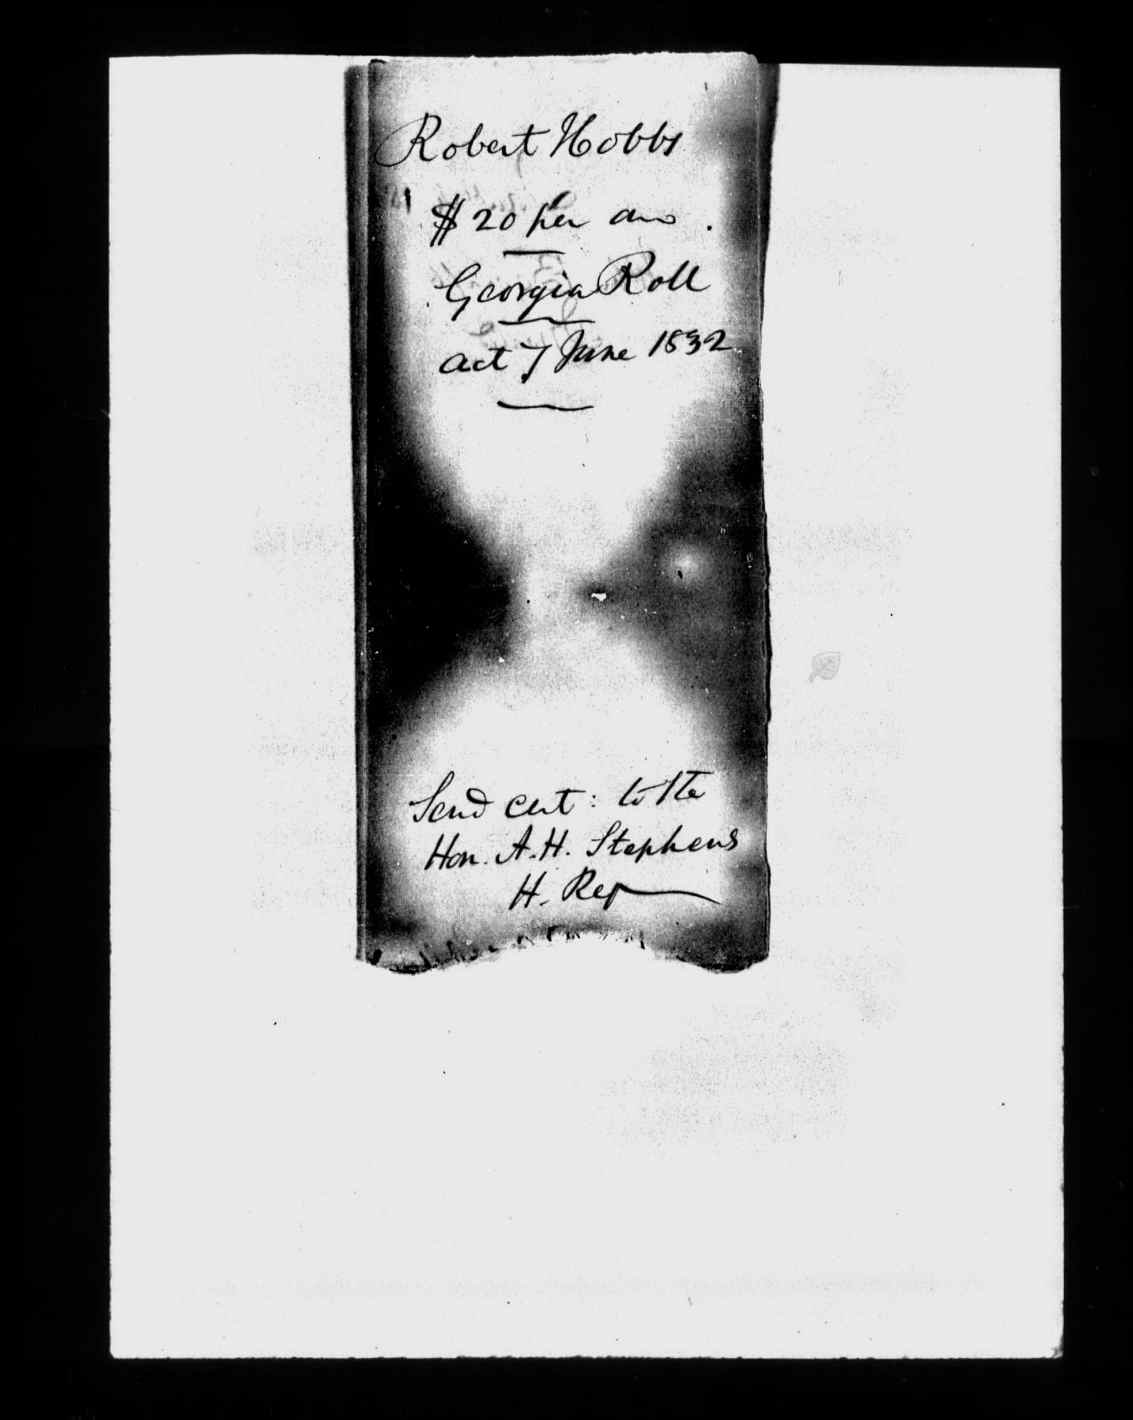 Robert Hobbs
$20 per ann.
Georgia Roll
act 7 June 1832
Send cert: to the
Hon. A.H. Stephens
H. Rep